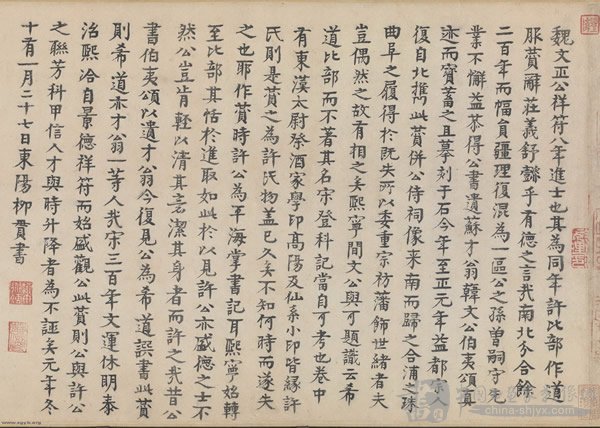 魏文正公祥符八年進士也其為同年許比部作道
服贊辭莊義舒繇乎有德之言哉南北分合餘
二百年而幅員疆理復混為一區公之孫曾嗣守先
業不懈益恭得公書遺蘇才翁韓文公伯夷頌真
迹而寶蓄之且摹刻于石今年至正元年益都人
復自北此贊併公侍祠像来南而歸之合浦之珠
曲阜之履得於既失所以委重宗祊藩飾世緒者夫
豈偶然之故有相之矣熙寧間文公與可題識云希
道比部而不著其名宋登科記當自可考也卷中
有東漢太尉祭酒家學印高陽及仙系小印皆緣許
氏則是贊之為許氏物蓋已久矣不知何時而遂失
之也耶作贊時許公為平海掌書記耳熙寧始轉
至比部其恬於進取如此於以見許公亦盛德之士不
然公豈肯輕以清其言潔其身者而許之哉昔公
書伯夷頌以遺才翁今復見公為希道譔書此贊
則希道亦才翁一等人哉宋三百年文運休明泰
治熙洽自景德祥符而始盛觀公此贊則公與許公
之聯芳科甲信人才與時升降者為不誣矣元年冬
十有一月二十七日東陽柳貫書
china-shjvx.com